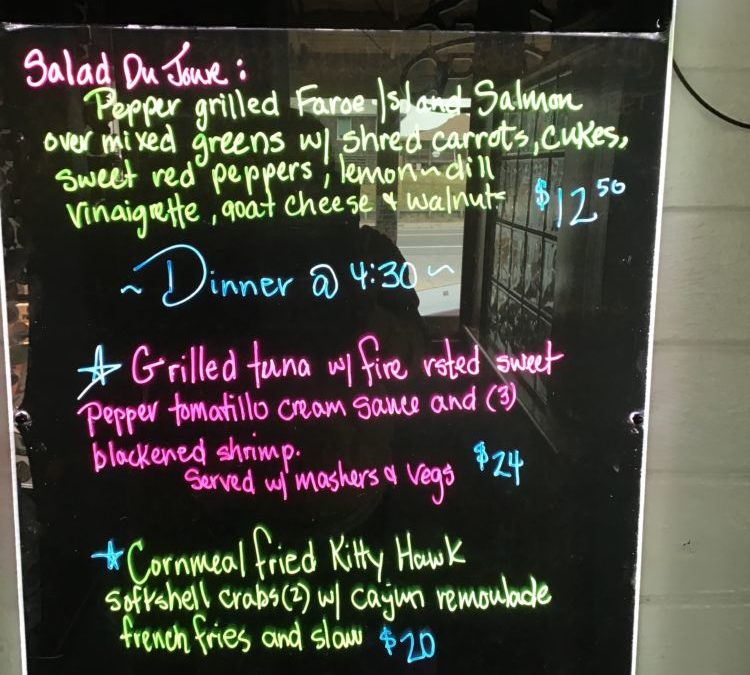 Salad Du Joure :
Pepper grilled Faroe Island Salmon
over mixed greens w/ shred carrots, cukes,
sweet red peppers, lemon~dill
vinaigrette, goat cheese & walnuts $12.50
~ Dinner @ 4:30 ~
Grilled tuna w/ fire rsted sweet
pepper tomatillo cream sauce and (3)
blackened shrimp.
Served w/ mashers & vegs $24
Cornmeal fried Kitty Hawk
softshell crabs (2) w/ cajun remoulade
french fries and slaw $20